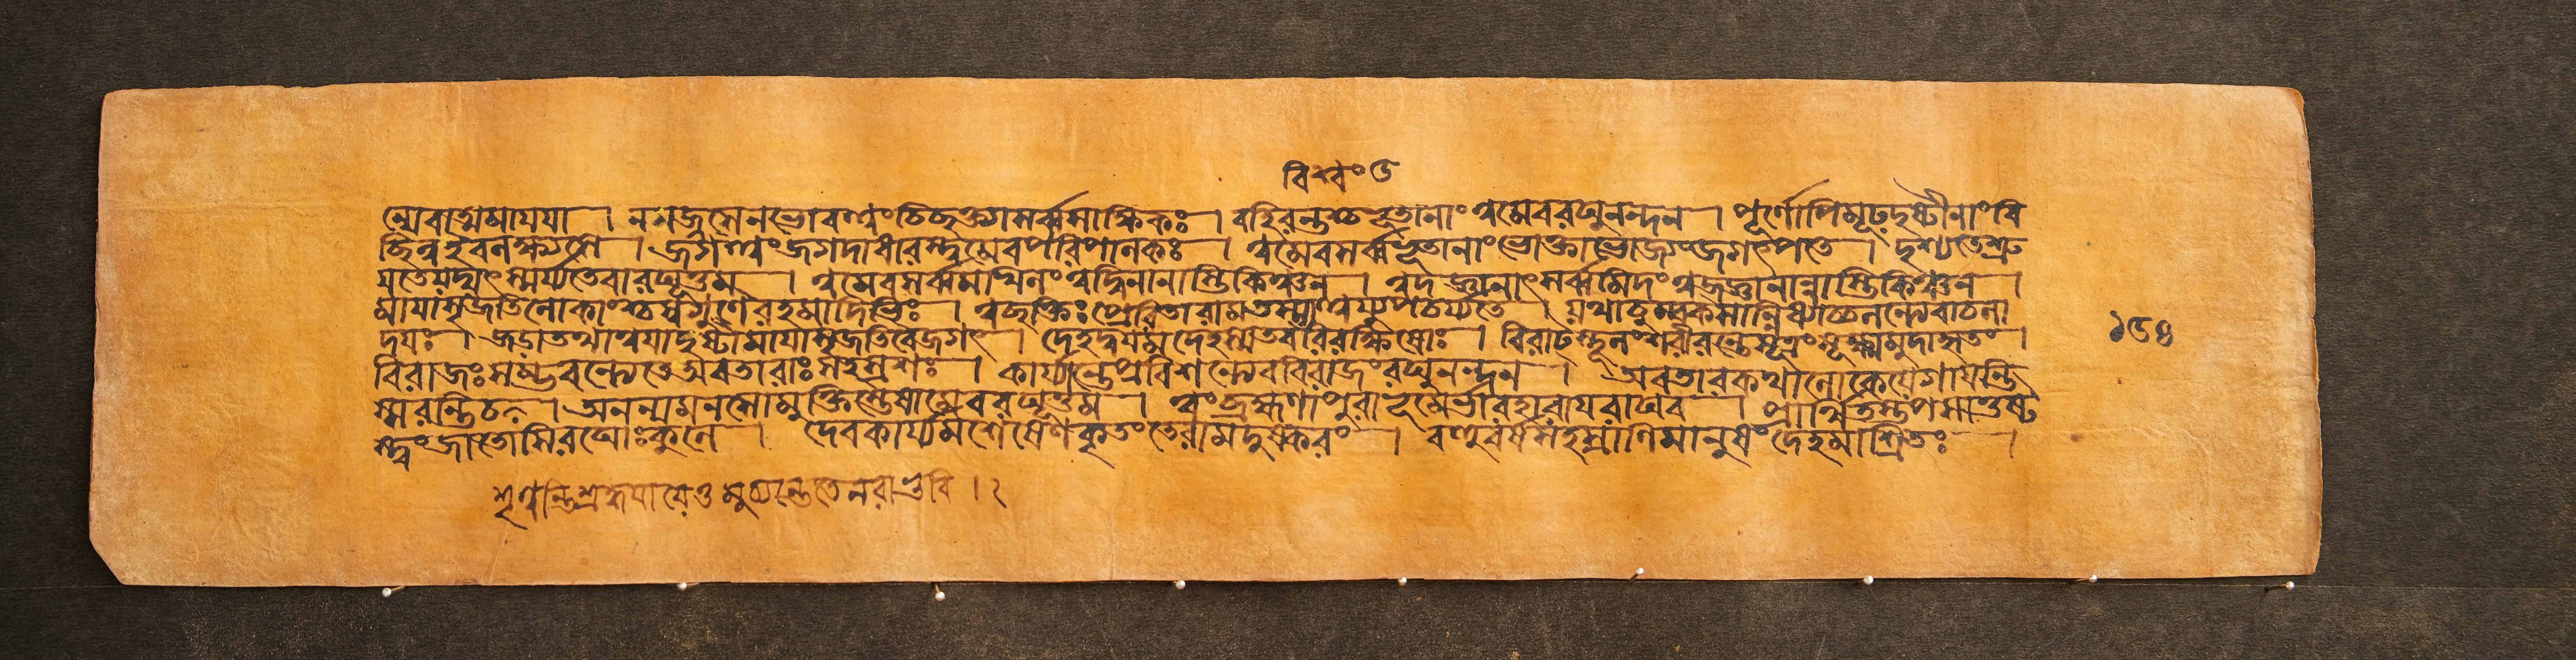 ন্মেবাত্মমাযযা । নসজ্জসেনভোবত্ত্বংচিচ্ছক্ত্যাসর্ব্বসাক্ষিকঃ । বহিরন্তশ্চভূতানাংত্বমেবরঘুনন্দন । পূর্ণোপিমূঢদৃষ্টীনাংবি
চ্ছিন্নইবলক্ষ্যসে । জগত্ত্বংজগদাধারস্ত্বমেবপরিপালকঃ । ত্বমেবসর্ব্বভূতানাংভোক্তাভোজ্যংজগৎপতে । দৃশ্যতেশ্রূ
যতেযদ্যৎস্মর্য্যতেবারঘূত্তম । ত্বমেবসর্ব্বমখিলংত্বদ্বিনানাস্তিকিঞ্চন । সর্ব্বমিদংত্বজ্জ্ঞানান্নাস্তিকিঞ্চন ।
মাযাসৃজতিলোকাংশ্চস্বগুণৈরহমাদিভিঃ । ত্বচ্ছক্তিঃপ্রেরিতারামতস্মাত্ত্বয্যুপচর্য্যতে । যথাচুম্বকসান্নিধ্যাচ্চলন্ত্যেবাচলা
দযঃ । জডাতথাত্বযাদৃষ্টামাযাসৃজতিবৈজগৎ । দেহদ্বযমদেহস্যতবরিরক্ষিষোঃ । বিরাটস্থূলংশরীরন্তেসূত্রংসূক্ষ্মমুদাহৃতং ।
বিরাজঃসম্ভবন্ত্যেতেঅবতারাঃসহস্রশঃ । কার্য্যান্তেপ্রবিশন্ত্যেববিরাজংরঘুনন্দন । অবতারকথাংলোকেযেগাযন্তি
স্মরন্তিচ । অনন্যমনসোমুক্তিস্তেষামেবরঘূত্তম । ত্বংব্রহ্মণাপুরাভূমের্ভারহারাযরাঘব । প্রার্থিতস্তপসাতুষ্ট
স্ত্বংজাতোসিরঘোঃকুলে । দেবকার্য্যমশেষেণকৃতংতেরামদুষ্করং । বহুবর্ষসহস্রাণিমানুষংদেহমাশ্রিতঃ ।
১৫৪